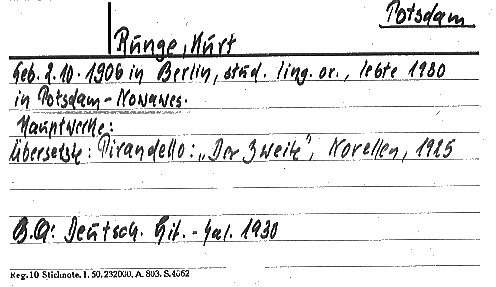 Potsdam
Runge, Kurt
Geb. 2.10.1906 in Berlin, stud. ling. or., lebte 1930
in Potsdam-Nowawes.
Hauptwerke:
Übersetzte: Pirandello: „Der Zweite", Novellen, 1925
B.A: Deutsch. Lit.-Kal. 1930
Reg. 10 Stichnote. I. 50. 232000, A. 803. S. 4062